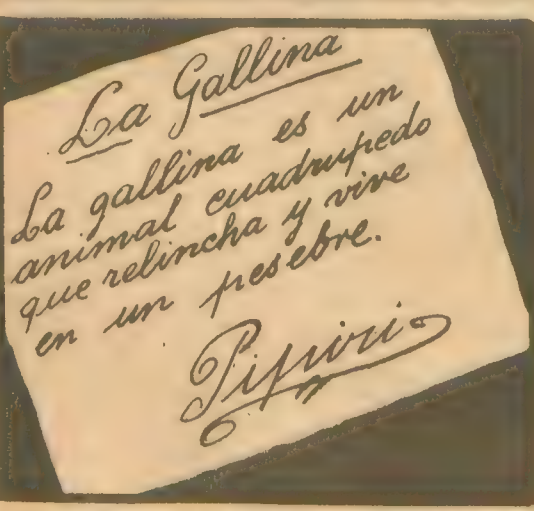 La Gallina
La gallina es un
animal cuadrupedo
que relincha y vive
en un pesebre.
Pipiri